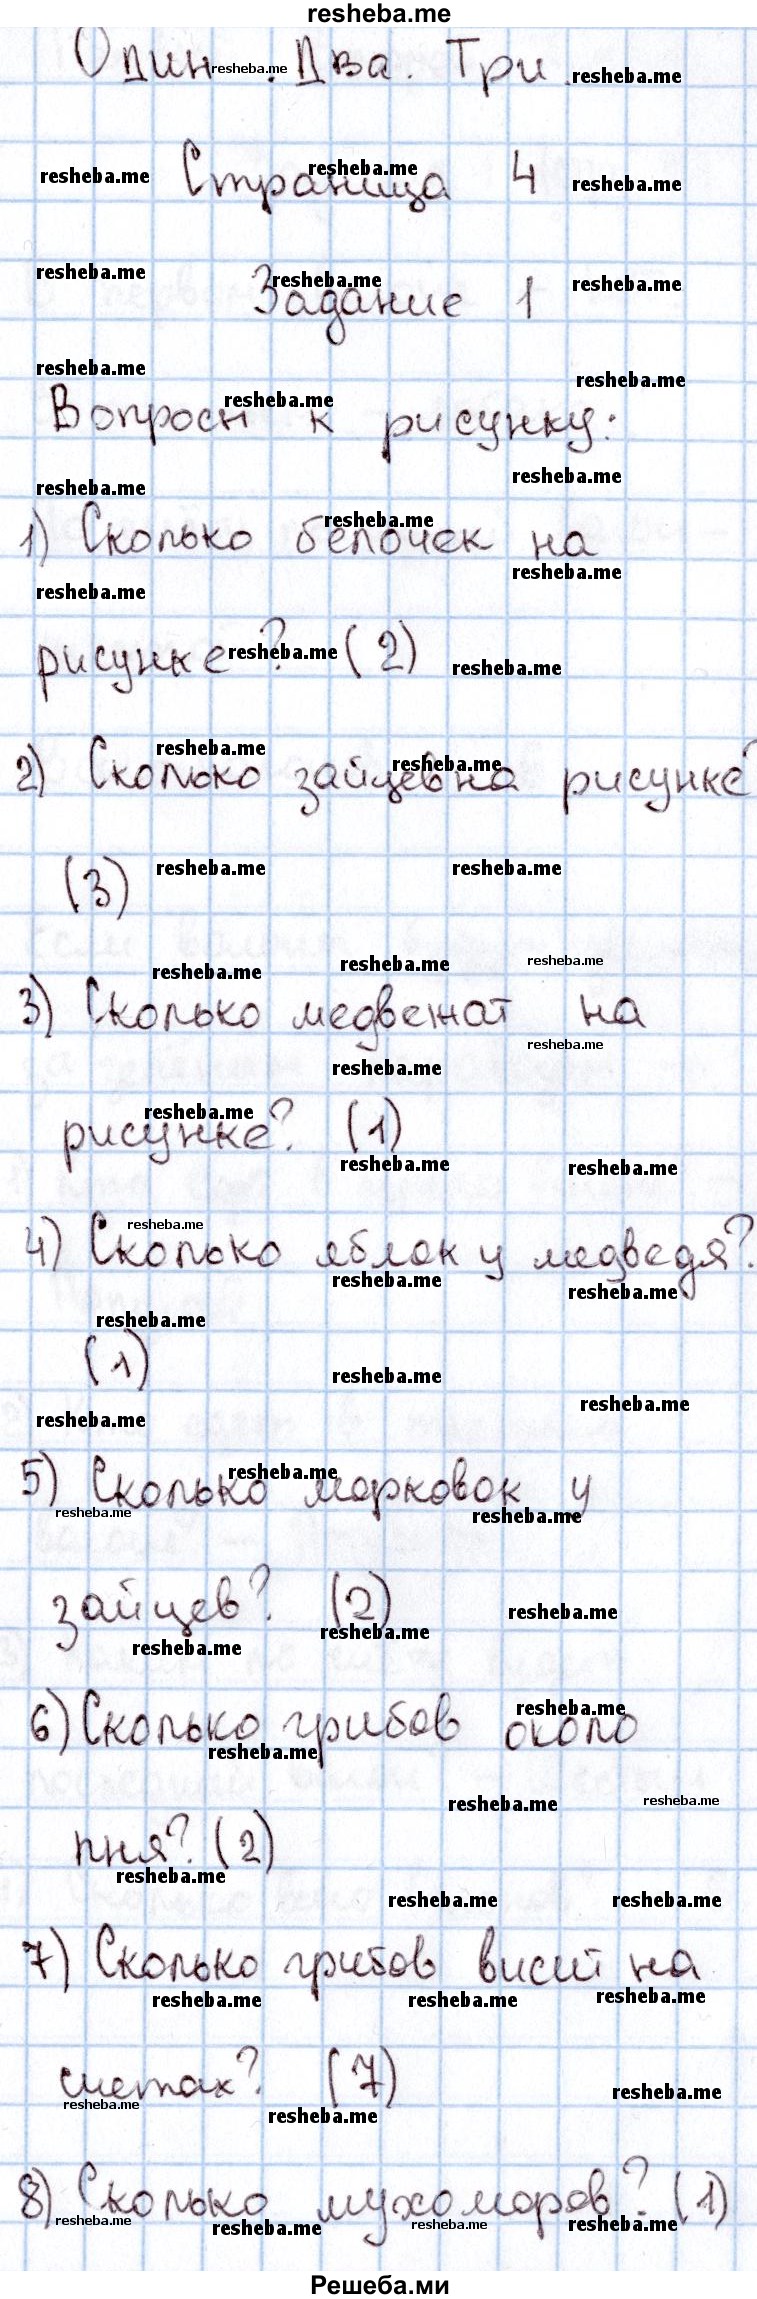 resheba.me
Один. Два. Три.
Страница 4
Задание 1
Вопросы к рисунку:
1) Сколько белочек на
рисунке? (2)
2) Сколько зайцев на рисунке?
(3)
3) Сколько медвежат на
рисунке? (1)
4) Сколько яблок у медведя?
(1)
5) Сколько морковок у
зайцев? (2)
6) Сколько грибов около
пня? (2)
7) Сколько грибов висит на
счетах? (7)
8) Сколько мухоморов? (1)
Решеба.ми